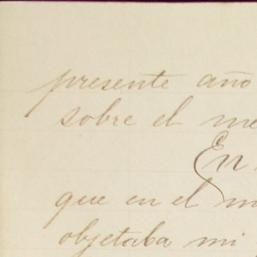 presente año
sobre el me
En
que en el m
objetaba mi